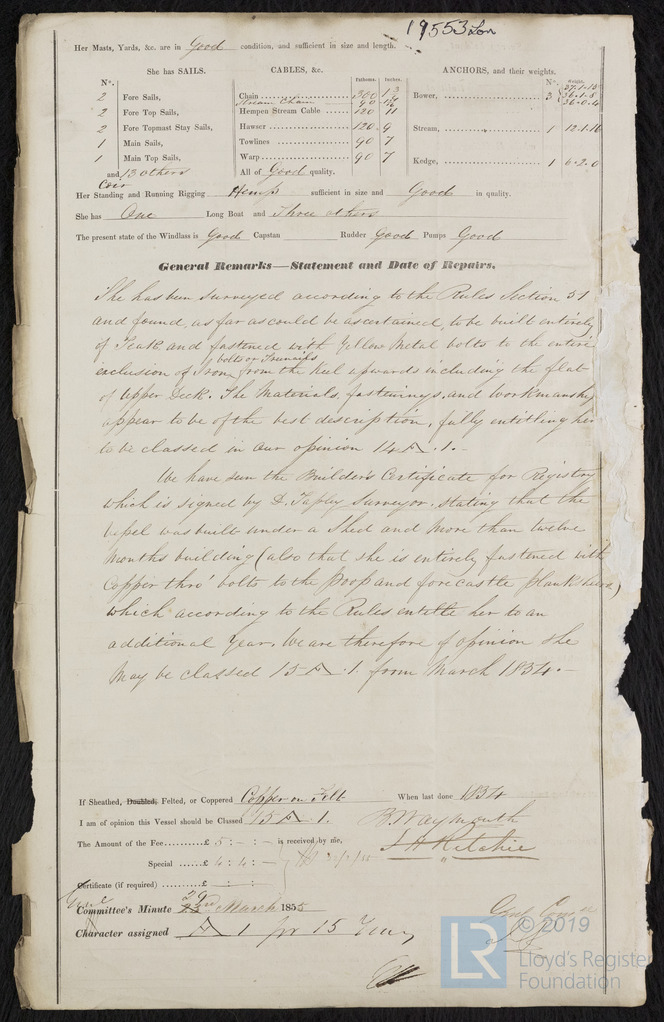 19553 Lon
Her Masts, Yards, &c. are in Good condition, and sufficient in size and length.
She has SAILS.
No.
2 Fore Sails,
2 Fore Top Sails,
2 Fore Topmast Stay Sails,
1 Main Sails,
1 Main Top Sails,
and 13 others
CABLES, &c.
Fathoms. Inches.
Chain 300
Stream Chain 90
Hempen Stream Cable 120 11
Hawser 120 9
Towlines 90 7
Warp 90 7
All of Good quality.
ANCHORS, and their weights.
No. Weight.
Bower, 3
36.1.8
36.0.4
Stream, 1 12.1.16
Kedge, 1 6.2.0
Coir
Her Standing and Running Rigging Hemp sufficient in size and Good in quality.
She has One Long Boat and Three others
The present state of the Windlass is Good Capstan Rudder Good Pumps Good
General Remarks—Statement and Date of Repairs.
She has been surveyed according to the Rules Section 51
and found, as far as could be ascertained, to be built entirely
of Teak and fastened with Yellow Metal bolts to the entire
bolts or Treenails
exclusion of Iron from the Keel upwards including the flat
of Upper Deck. The Materials, fastenings, and workmanship
appear to be of the best description, fully entitling her
to be classed in our opinion 14 A. 1. -
We have seen the Builder's Certificate for Registry
which is signed by D. Tapley Surveyor, stating that the
vessel was built under a Shed and more than twelve
months building (also that she is entirely fastened with
Copper thro' bolts to the Poop and forecastle plank
which according to the Rules entitle her to an
additional Year. We are therefore of opinion she
may be classed 15 A. 1. from March 1834. -
If Sheathed, Doubled, Felted, or Coppered Copper on Felt When last done 1834
I am of opinion this Vessel should be Classed 15 A. 1.
B. Waymouth
The Amount of the Fee £ 5 : - : - is received by me,
J H Ritchie
Special £ 4 : 4 : -
Certificate (if required) £ - : - : -
29
Committee's Minute 23rd March 1855
Character assigned A 1 for 15 Years
LR
© 2019
Lloyd's Register
Foundation